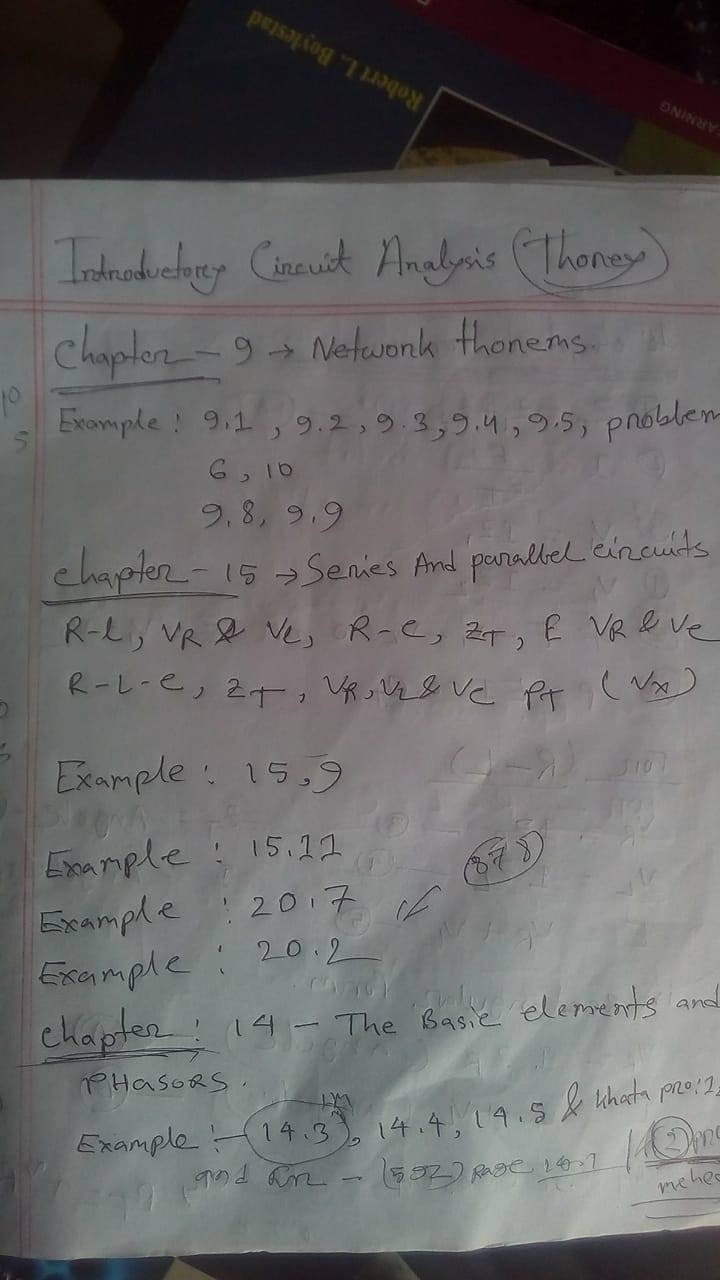 Robert L. Boylestad
Introductory Circuit Analysis (Thorey)
Chapter - 9 → Network thorems.
10
5
Example : 9.1 , 9.2 , 9.3, 9.4 , 9.5, problem
6 , 10
9.8, 9.9
chapter - 15 → Series And parallel circuits
R-L, VR & VL, R-C, ZT, E VR & VC
R-L-C, ZT, VR, VL & VC PT (Vx)
Example : 15.9
Example : 15.11
878
Example : 20.7
Example : 20.2
chapter : 14 - The Basic elements and
PHASORS.
Example :- 14.3, 14.4, 14.5 & khata pro:
and